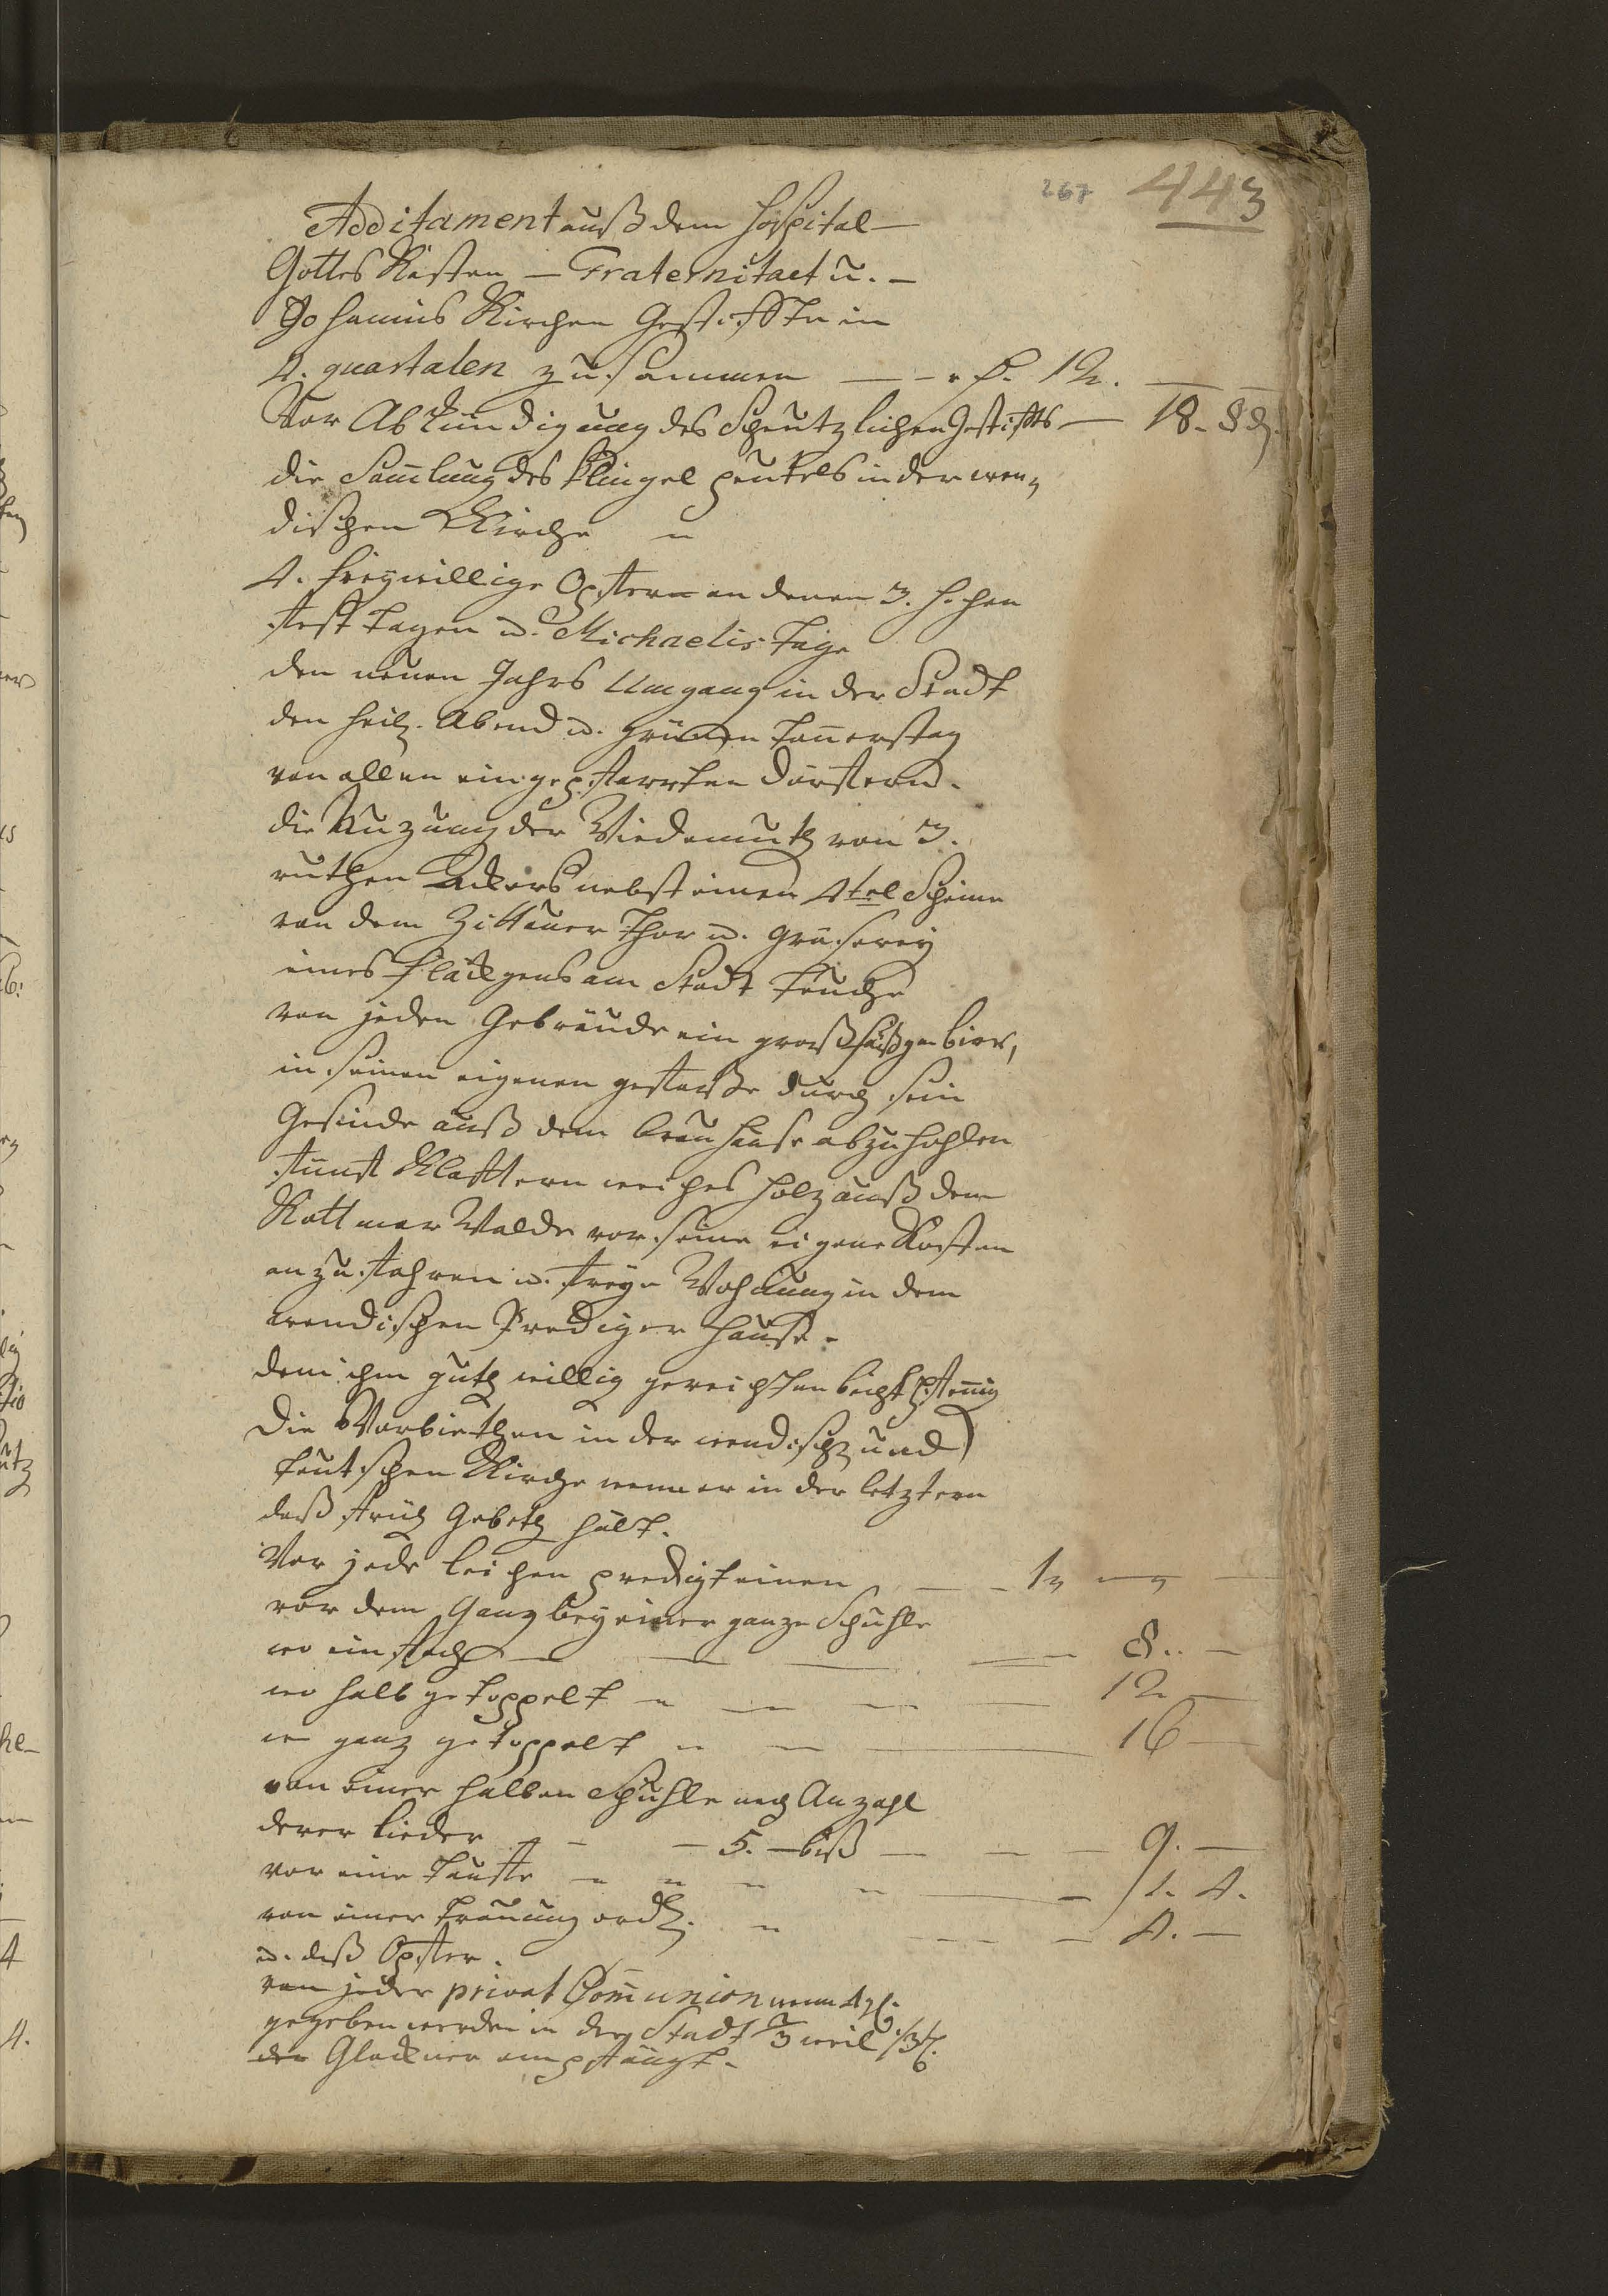 267 443
Additament auß dem Hospital -
Gottes Kasten - Fraternitaet u. -
Johannis Kirchen Gestifften in
4. quartalen zusammen — - rh. 12. — —
Vor Abkündigung des Scheutzlichen Gestiffts — 18. 8 d.
die Samlung des Klingel peutels in der wen-
dischen Kirche
4. freywillige Opffern an denen 3. hohen
Fest tagen u. Michaelis Tage
den neuen Jahrs Umgang in der Stadt
den heil. Abend u. grünen Donnerstag
von allen eingepfarrten Dörffern.
die Nuzung der Wiedemuth von 3.
ruthen Ackers nebst einer 4tel Scheune
von dem Zittauer Thor u. Gräserey
eines Fläckgens am Stadt Teuche
von jeden Gebräude ein groß Fäßgen bier,
in seinen eigenen gefäße durch sein
Gesinde auß dem Brauhause abzuhohlen
Fünff Klafftern weiches Holz auß dem
Kottmar Walde vor seine eigene Kosten
anzufahren u. freye Wohnung in dem
wendischen Prediger Hause.
dem ihm guth willig gereichten beicht pfennig
Die Vorbiethen in der wendisch und
teutschen Kirche wenn er in der letztern
daß früh Gebeth hält.
Vor jede leichen predigt einen — - 1
vor dem Gang bey einer ganze Schuhle
wo einfach — — — — 8.. —
wo halb getoppelt — — — — 12 —
wo ganz getoppelt — — — 16
von einer halben Schuhle nach Anzahl
derer lieder — — 5. - biß — — — 9. —
vor eine Tauffe — — — — — 1. 4.
von einer Trauung ordl. — — — 4. —
u. daß Opffer.
von jeder privat Communion wenn 4 gl.
gegeben werden in der Stadt 3 weil
der Glöckner empfängt.